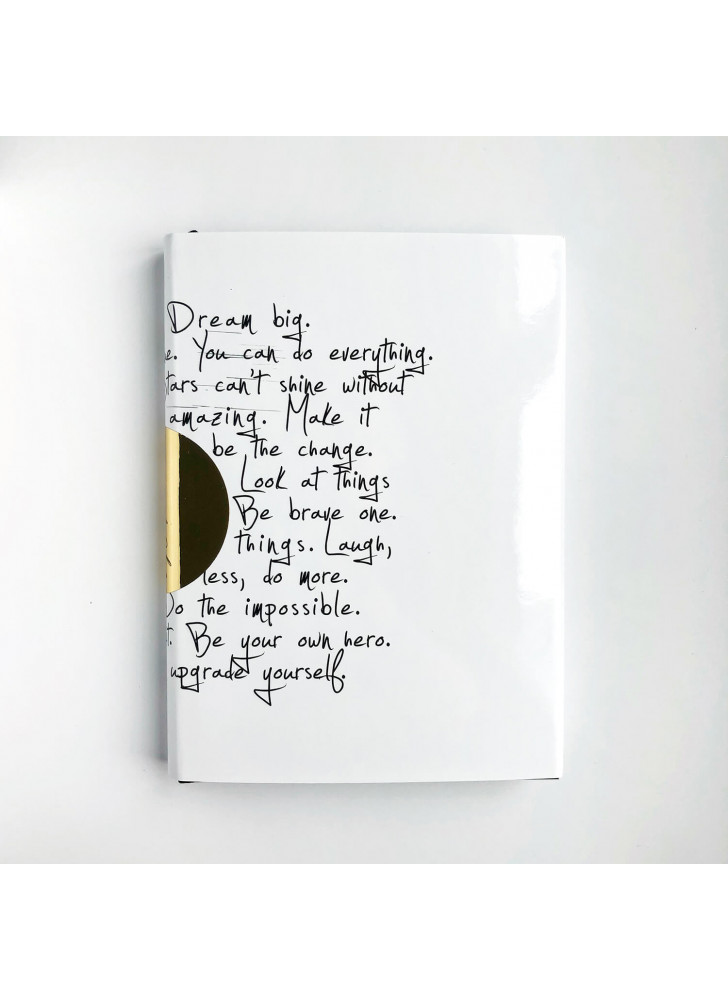 Dream big.
e. You can do everything.
stars can't shine without
amazing. Make it
be the change.
Look at things
Be brave one.
things. Laugh,
less, do more.
Do the impossible.
t. Be your own hero.
upgrade yourself.